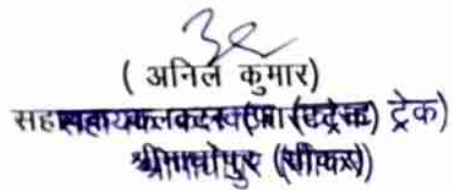 ( अनिल कुमार)
सहायक कलक्टर (फास्ट ट्रेक)
श्रीमाधोपुर (सीकर)